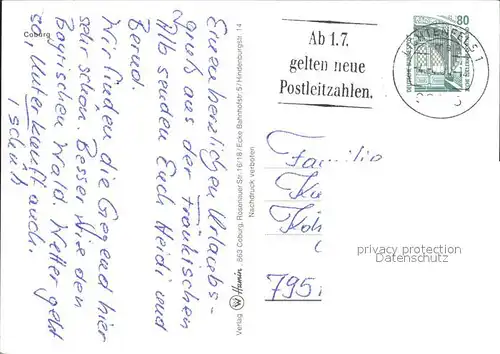 Coburg
Einen herzlichen Urlaubs-
gruß aus der Fränkischen
Alb senden Euch Heidi und
Bernd.
Wir finden die Gegend hier
sehr schön. Besser wie den
Bayrischen Wald. Wetter geht
so, Unterkunft auch.
Tschüß
Verlag Hamin 863 Coburg, Rosenauer Str. 16/18 / Ecke Bahnhofstr. 5 / Hindenburgstr. 14
Nachdruck verboten
Ab 1.7.
gelten neue
Postleitzahlen.
LICHTENFELS 1
80
DEUTSCHE BUNDESPOST
Familie
795
privacy protection
Datenschutz